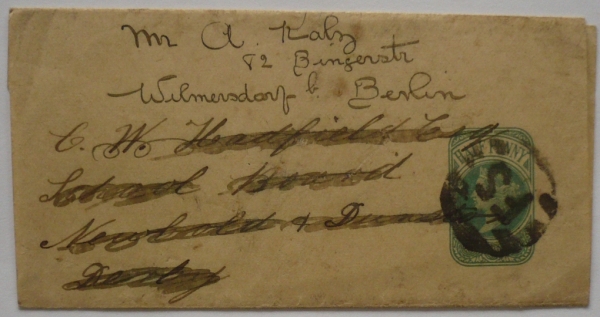 Mr A. Kalz
82 Bingerstr
Wilmersdorf b. Berlin
C. W. Hadfield
School Board
Newbold & 
Derby
HALF PENNY